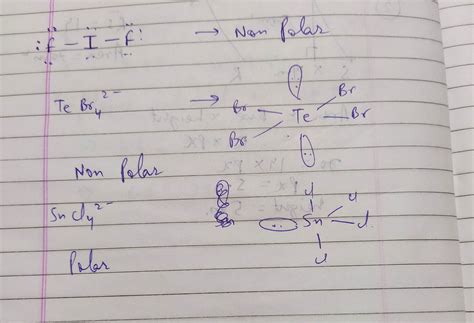 :F̈ – Ï – F̈: → Non Polar
Te Br₄²⁻ → Br Te Br Br Br
Non Polar
SnCl₄²⁻ Sn Cl Cl Cl Cl
Polar